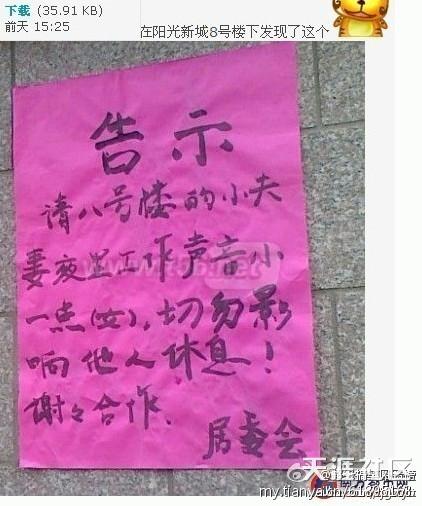 下载 (35.91 KB)
前天 15:25
在阳光新城8号楼下发现了这个
告示
请八号楼的小夫
妻夜里工作声音小
一点(女),切勿影
响他人休息!
谢々合作.
居委会
天涯社区